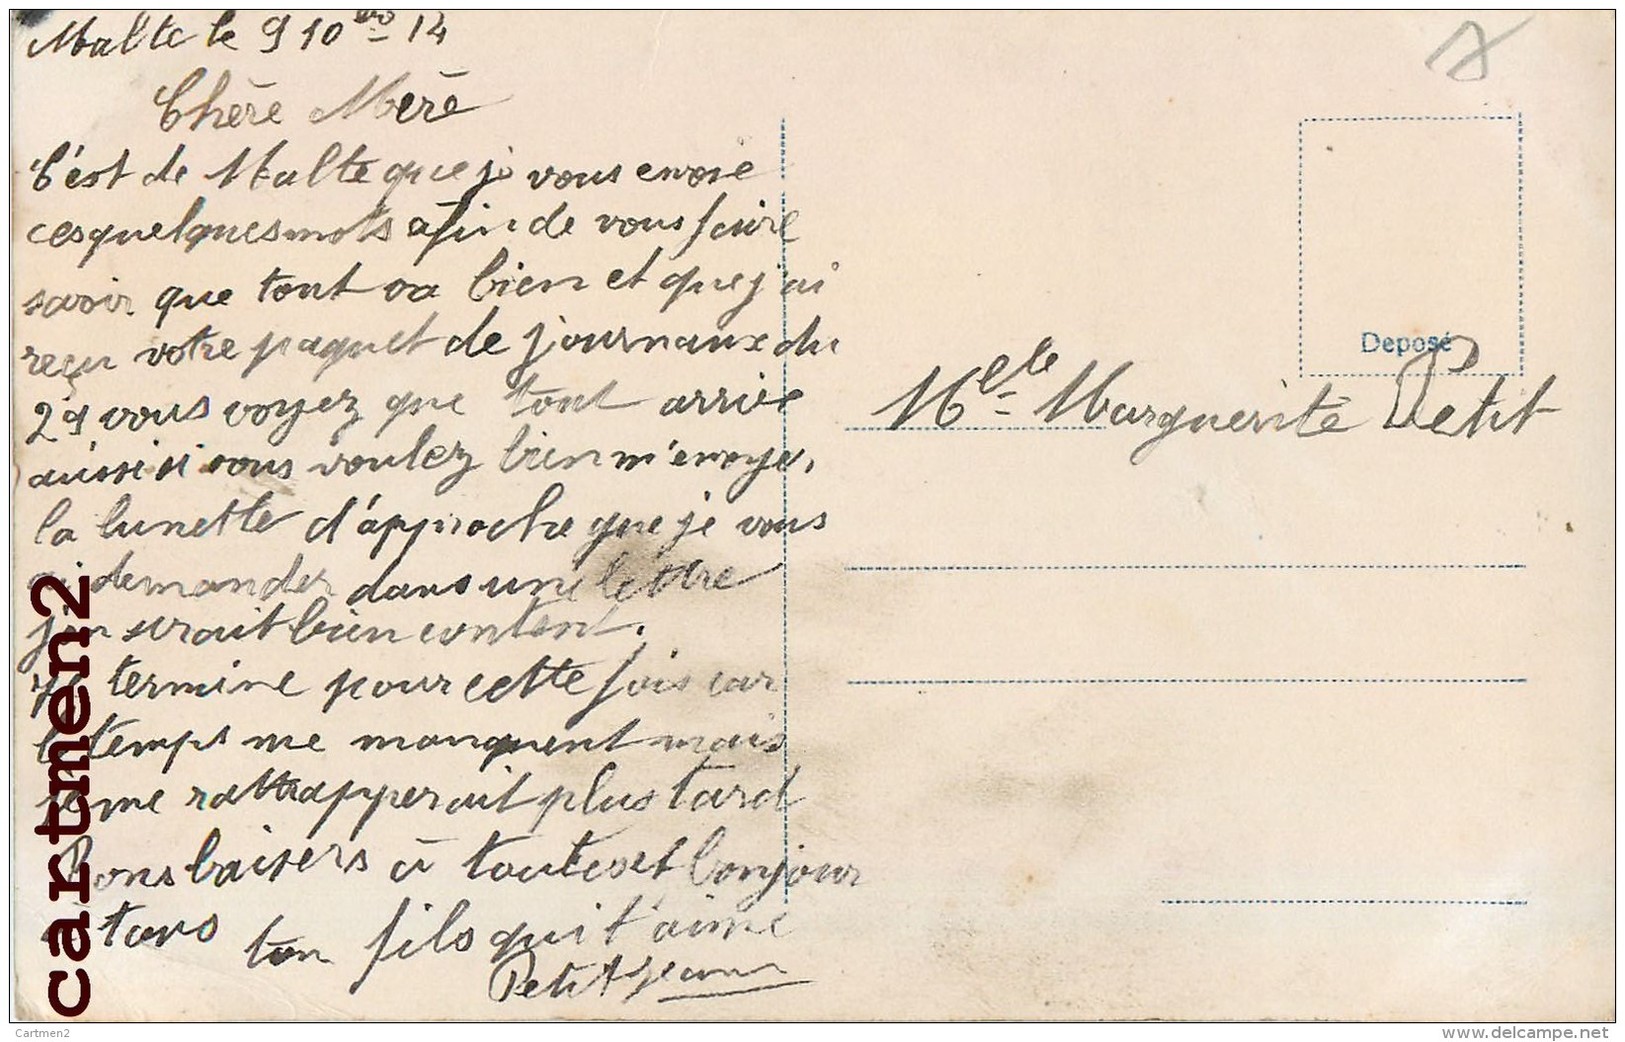 Malte le 9 10bre 14
Chère Mère
C'est de Malte que je vous envoie
ces quelques mots afin de vous faire
savoir que tout va bien et que j'ai
reçu votre paquet de journaux du
29 vous voyez que tout arrive
aussi si vous voulez bien m'envoyer,
la lunette d'approche que je vous
ai demander dans une lettre
j'en serait bien content.
Je termine pour cette fois car
le temps me manquent mais
je me rattrapperait plus tard
Bons baisers à toutes et bonjour
a tous
ton fils qui t'aime
Petit Jean
Deposé
Melle Marguerite Petit
cartmen2
Cartmen2
www.delcampe.net